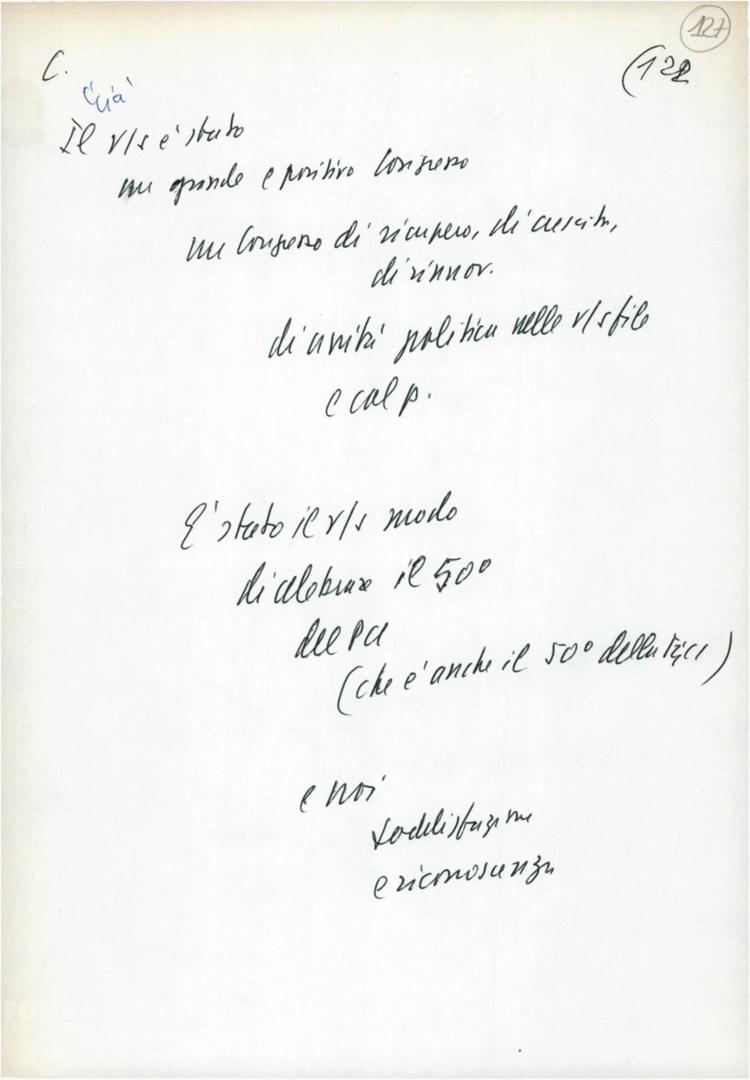 127
C.
(122
Già
Il v/s è stato
un grande e positivo Congresso
un Congresso di recupero, di crescita,
di rinnov.
di unità politica nelle v/s file
e col p.
E' stato il v/s modo
di celebrare il 50°
del PCI
(che è anche il 50° della FGCI)
e noi
soddisfazione
e riconoscenza